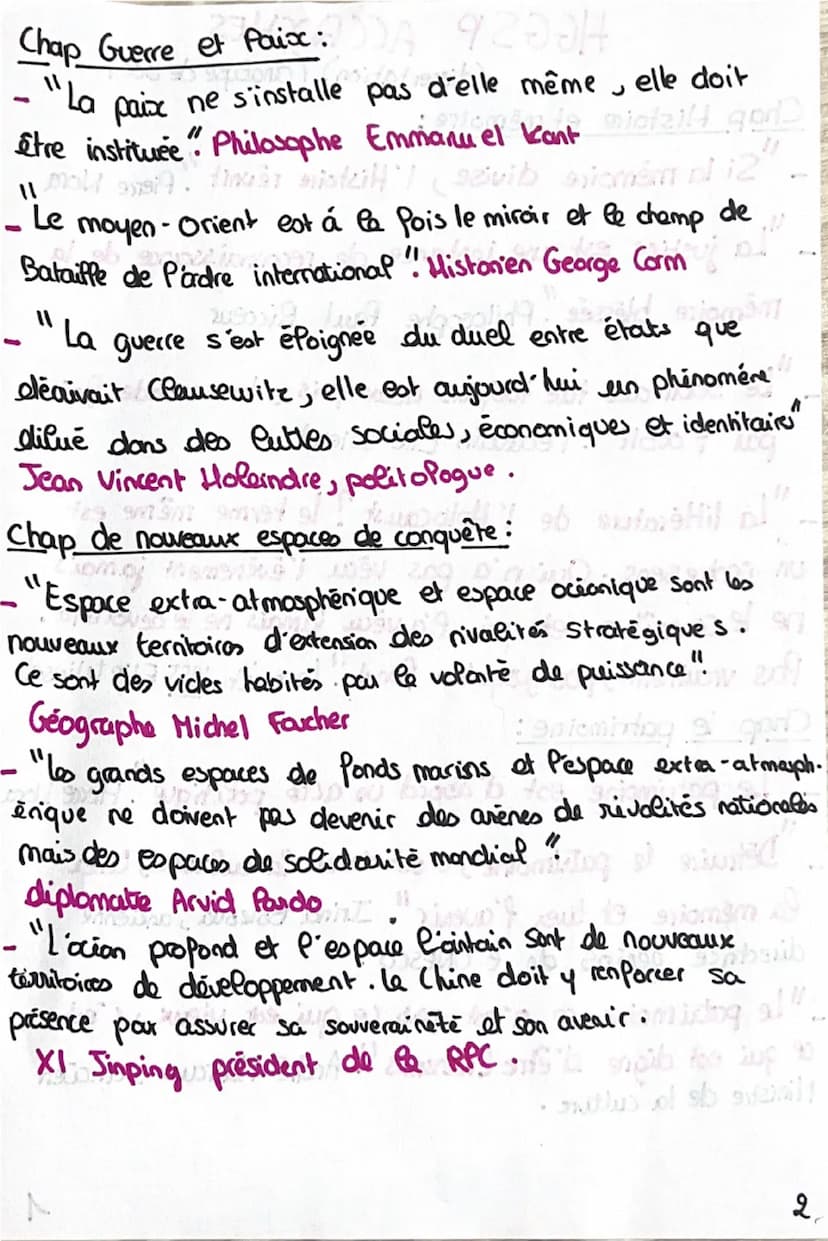 Chap Guerre et Paix :
- "La paix ne s'installe pas d'elle même, elle doit
être instituée". Philosophe Emmanuel Kant
"
- Le moyen-Orient est á la fois le miroir et le champ de
Bataille de l'ordre international". Historien George Corm
- "La guerre s'est éloignée du duel entre états que
décrivait Clausewitz, elle est aujourd'hui un phénomène
dilué dans des luttes sociales, économiques et identitaires"
Jean Vincent Holeindre, politologue.
Chap de nouveaux espaces de conquête :
- "Espace extra-atmosphérique et espace océanique sont les
nouveaux territoires d'extension des rivalités stratégiques.
Ce sont des vides habités par la volonté de puissance".
Géographe Michel Foucher
- "Les grands espaces de fonds marins et l'espace extra-atmosph-
érique ne doivent pas devenir des arènes de rivalités nationales
mais des espaces de solidarité mondial".
diplomate Arvid Pardo
- "L'océan profond et l'espace lointain sont de nouveaux
térritoires de développement. La Chine doit y renforcer sa
présence par assurer sa souveraineté et son avenir
XI Jinping président de la RPC.
2